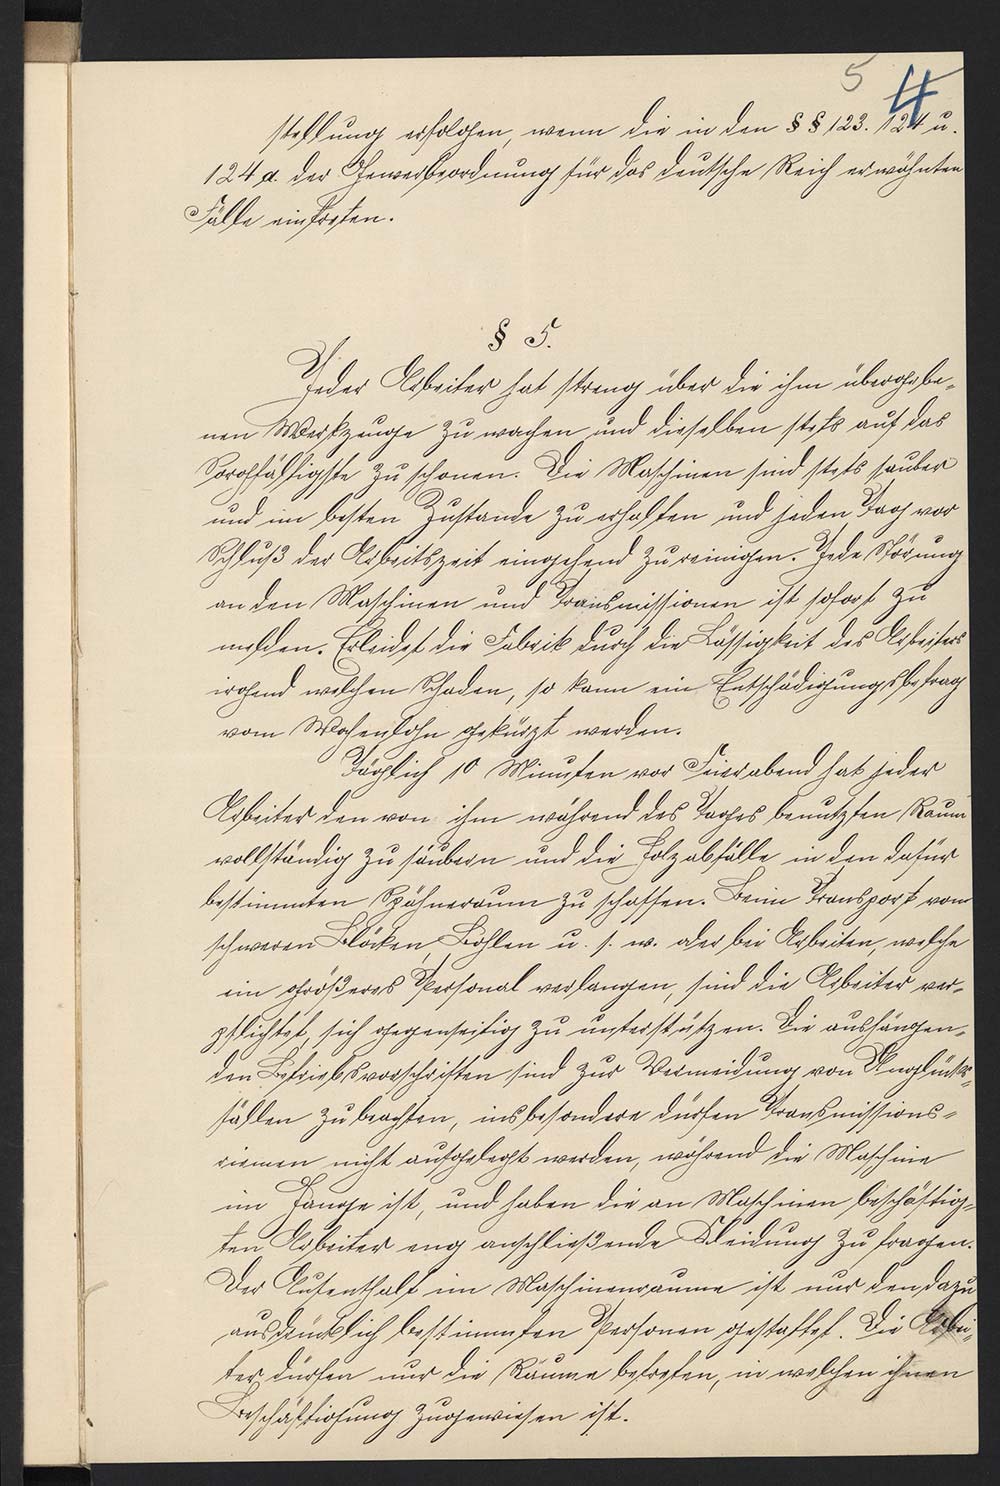 5 4
stellung erfolgen, wenn die in den §§ 123. 124 u.
124 a. der Gewerbeordnung für das deutsche Reich erwähnten
Fälle eintreten.
§ 5.
Jeder Arbeiter hat streng über die ihm übergebe-
nen Werkzeuge zu wachen und dieselben stets auf das
Sorgfältigste zu schonen. Die Maschinen sind stets sauber
und im besten Zustande zu erhalten und jeden Tag vor
Schluß der Arbeitszeit eingehend zu reinigen. Jede Störung
an den Maschinen und Transmissionen ist sofort zu
melden. Erleidet die Fabrik durch die Lässigkeit des Arbeiters
irgend welchen Schaden, so kann ein Entschädigungsbetrag
vom Wochenlohn gekürzt werden.
Täglich 10 Minuten vor Feierabend hat jeder
Arbeiter den von ihm während des Tages benutzten Raum
vollständig zu säubern und die Holzabfälle in den dafür
bestimmten Spähneraum zu schaffen. Beim Transport von
schweren Blöcken, Bohlen u. s. w. oder bei Arbeiten, welche
ein größeres Personal verlangen, sind die Arbeiter ver-
pflichtet, sich gegenseitig zu unterstützen. Die aushängen-
den Betriebsvorschriften sind zur Vermeidung von Unglücks-
fällen zu beachten, insbesondere dürfen Transmissions-
riemen nicht aufgelegt werden, während die Maschine
im Gange ist, und haben die an Maschinen beschäftig-
ten Arbeiter eng anschließende Kleidung zu tragen.
Der Aufenthalt im Maschinenraume ist nur den dazu
ausdrücklich bestimmten Personen gestattet. Die Arbei-
ter dürfen nur die Räume betreten, in welchen ihnen
Beschäftigung zugewiesen ist.